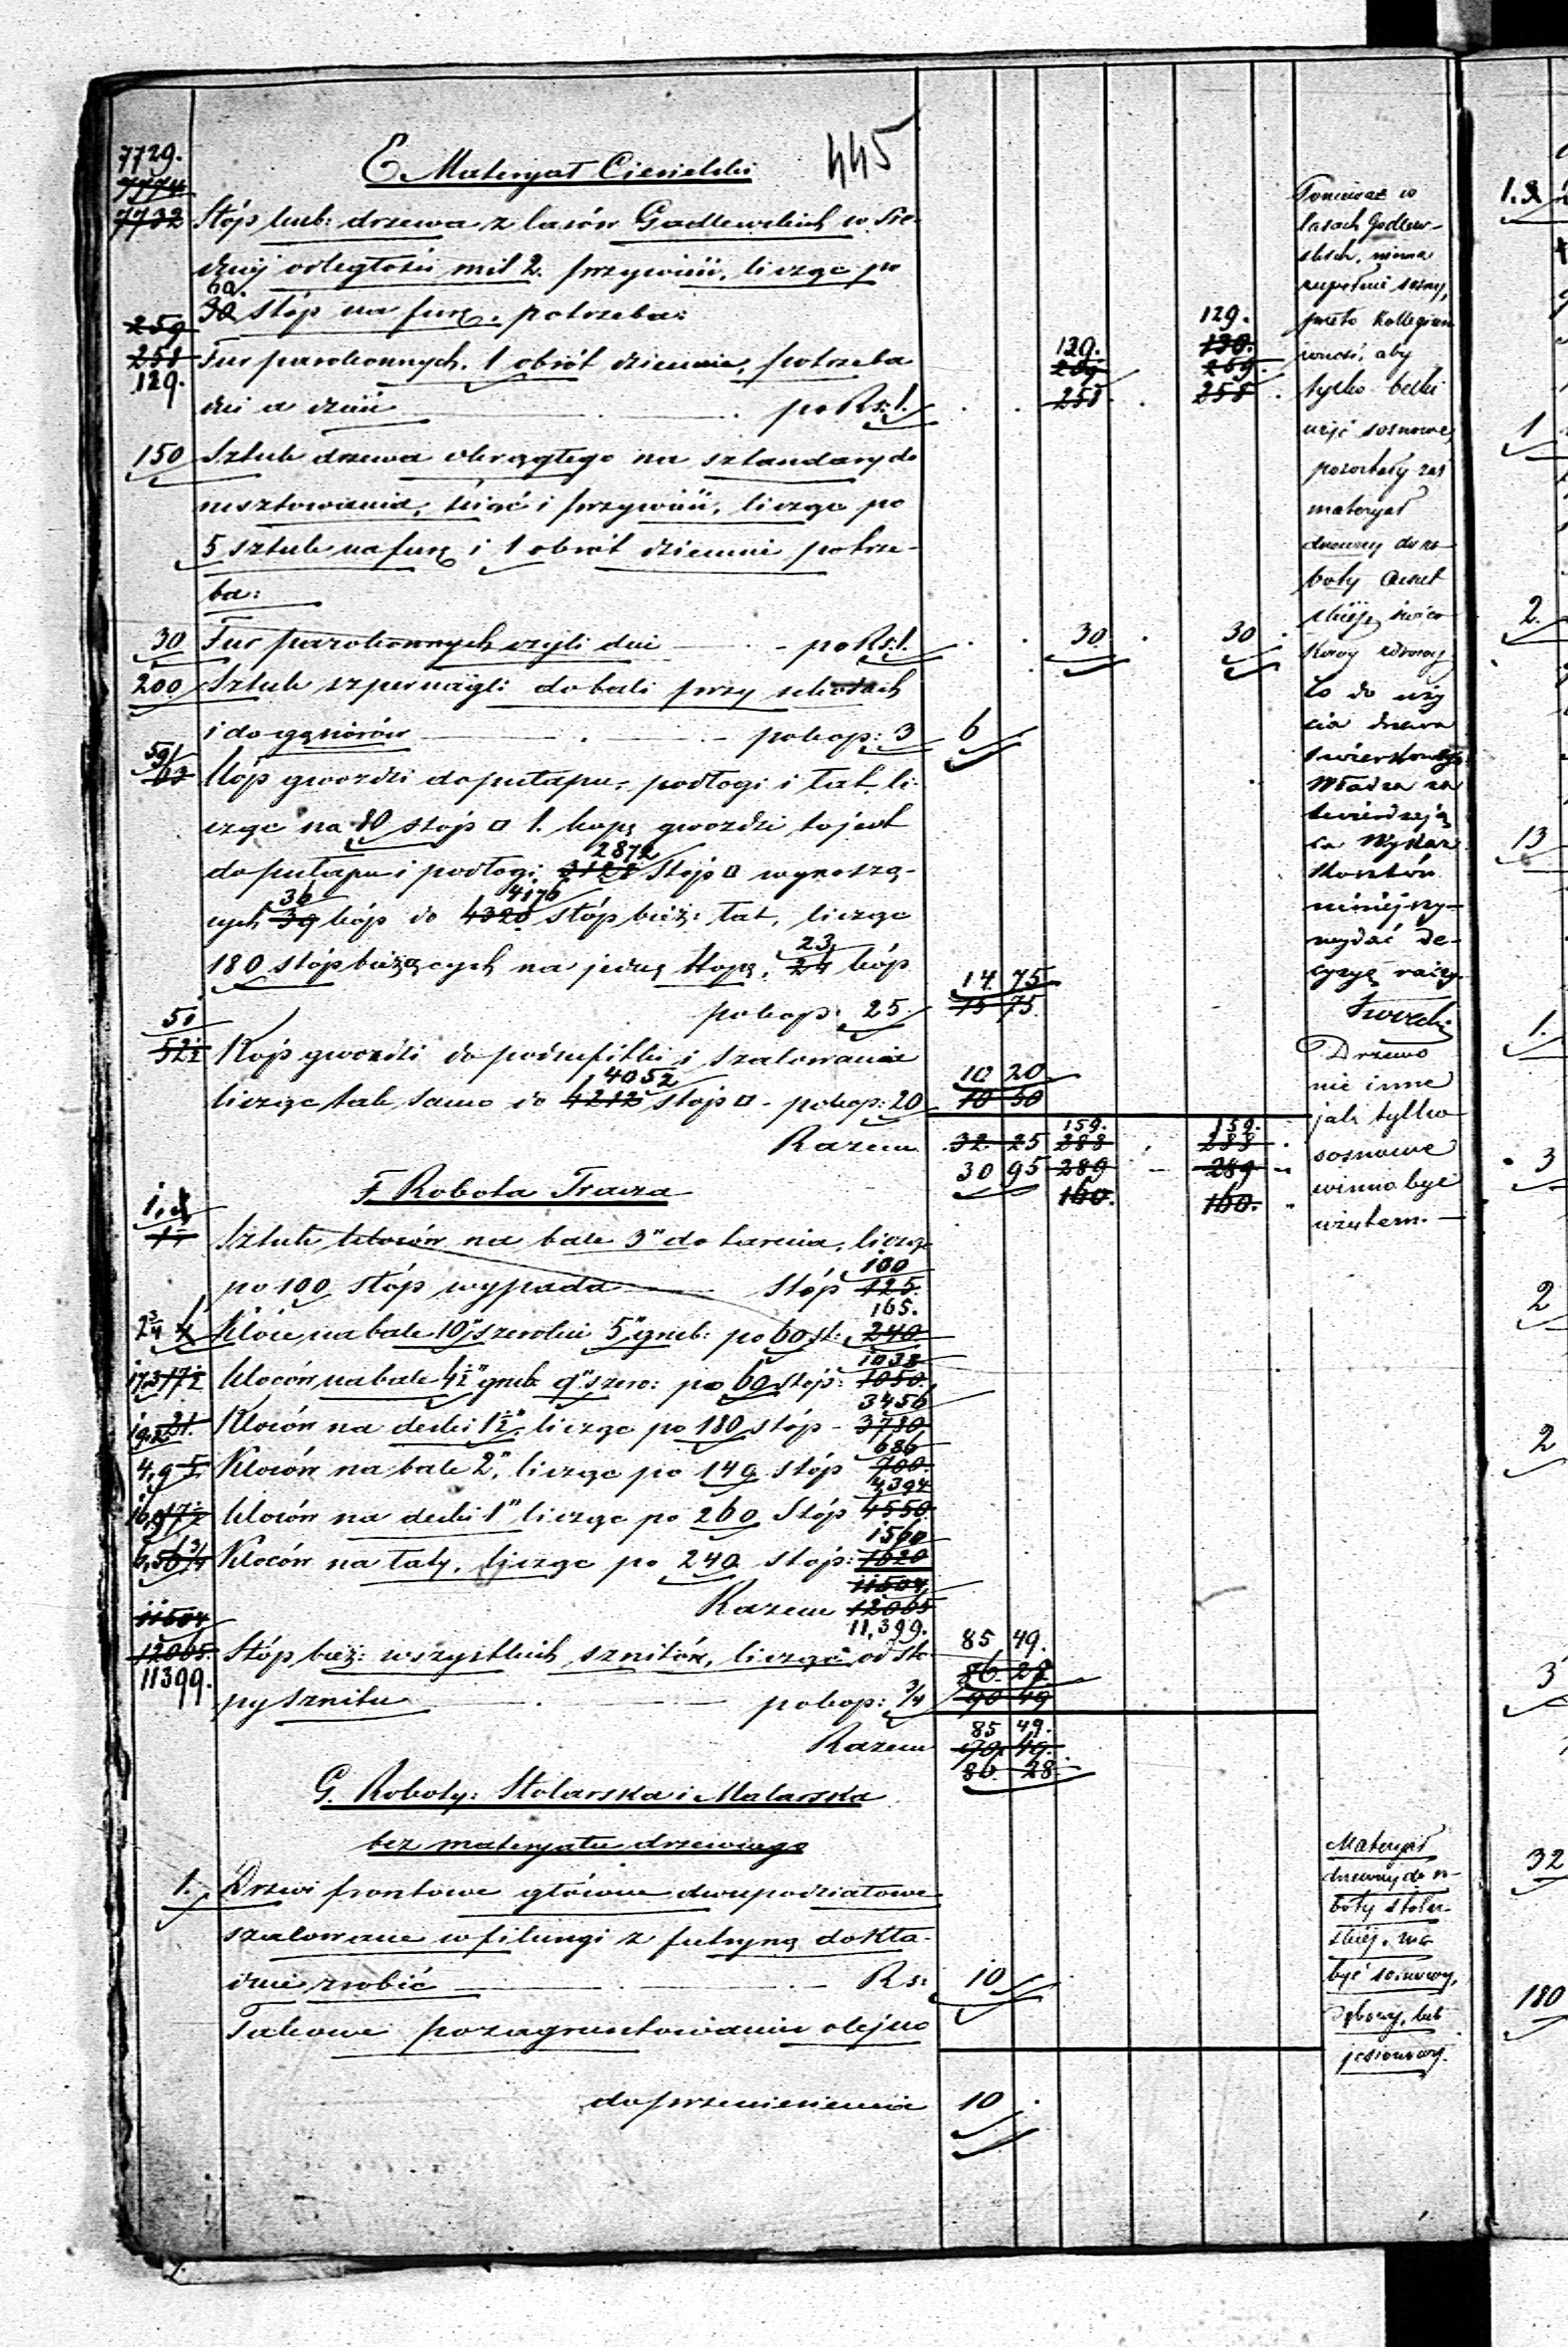 445
E Materyał Ciesielski
7729.
7774
7732 Stóp kub: drzewa z lasów Godlewskich w śre-
dniéj odległości mil 2. przywieść, licząc po
60.
30 stóp na furę, potrzeba:
259
258 Fur parokonnych, 1 obrót dziennie, potrzeba
129.
dni a dzień po Rs: 1.
129. 129.
259 130.
258 259.
258
150 Sztuk drzewa okrągłego na sztandary do
rusztowania, ściąć i przywieść, licząc po
5 sztuk na furę i 1 obrót dziennie potrze-
ba:
30 Fur parokonnych czyli dni po Rs: 1. 30. 30
200 Sztuk szpernägli do bali przy schodach
i do gąsiorów po kop: 3 6
59
63 Kóp gwoździ do pułapu, podłogi i łat, li-
cząc na 80 stóp □ 1. kopę gwoździ to jest
2872
do pułapu i podłogi 3122 stóp □ wynoszą-
36 4176
cych 39 kóp do 4320 stóp bież: łat, licząc
23
180 stóp bieżących na jedną kopę, 24 kóp
14. 75
po kop: 25. 15 75.
51
52½ Kóp gwoździ do podsufitki i szalowania
4052 10 20
licząc tak samo do 4212 stóp □ - po kop: 20 10 50
159. 159.
Razem 32. 25 288 288
30 95 289 289
160. 160.
F Robota Tracza
1
Sztuk kloców na bale 3" do tarcia, licząc
100
po 100 stóp wypada stóp 125.
165.
2¾ 4 Kloce na bale 10" szerokie 5" grub: po 60 st: 240
1038
17,3 17½ Kloców na bale 4½" grub 9" szero: po 60 stóp: 1050.
3456
19,2 21. Kloców na deski 1½" licząc po 180 stóp - 3780
686
4,9 5 Kloców na bale 2", licząc po 140 stóp 700.
4394
16,9 17½ Kloców na deski 1" licząc po 260 Stóp 4550.
1560
6,5 6¾ Kloców na łaty, licząc po 240 stóp: 1620
11504
Razem 12065
11,399.
11504
12065. Stóp bież: wszystkich sznitów, licząc od sto-
11399.
py sznitu po kop: ¾
85 49.
86. 28.
90 49
85 49.
Razem 90. 49.
86. 28
G. Roboty: Stolarska i Malarska
bez materyału drzewnego
1. Drzwi frontowe główne dwupodziałowe
szalowane w filungi z futryną dokła-
dnie zrobić Rs: 10
Takowe po zagruntowaniu olejno
do przeniesienia 10
Ponieważ w
lasach Godlew-
skich, niema
zupełnie sosny,
przeto Kollegium
wnosi, aby
tylko belki
wziąć sosnowe,
pozostały zaś
materyał
drzewny do ro-
boty Ciesiel
skiéj, świer
kowy zdrowy
Co do uży
cia drzewa
świerkowego
Władza za
twierdzają
ca Wykaz
Kosztów
niniejszy-
wydać de-
cyzyę raczy.
Drzewo
nie inne
jak tylko
sosnowe
winno być
użytem. —
Materyał
drzewny do ro-
boty stolar-
skiéj, ma
być sosnowy,
dębowy, lub
jesionowy.
1.
1
2.
13
1.
3
2
2
3
32
180